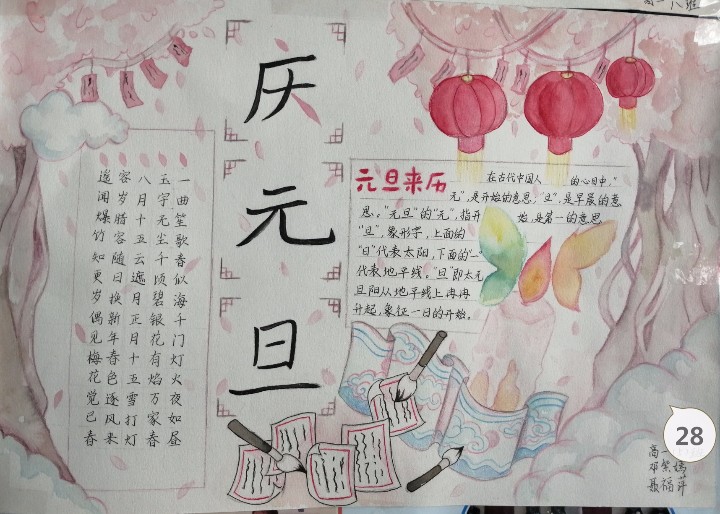 高一八班
庆元旦
一曲笙歌春似海千门灯火夜如昼
玉宇无尘千顷碧银花有焰万家春
八月十五云遮月正月十五雪打灯
容岁腊容随日换新年春色逐风来
遥闻爆竹知更岁偶见梅花觉已春
元旦来历
在古代中国人 的心目中,"
元",是开始的意思;"旦",是早晨的意
思。"元旦"的"元",指开 始,是第一的意思
"旦",象形字,上面的
"日"代表太阳,下面的"一
代表地平线。"旦"即太元
旦阳从地平线上冉冉
升起,象征一日的开始。
28
高一